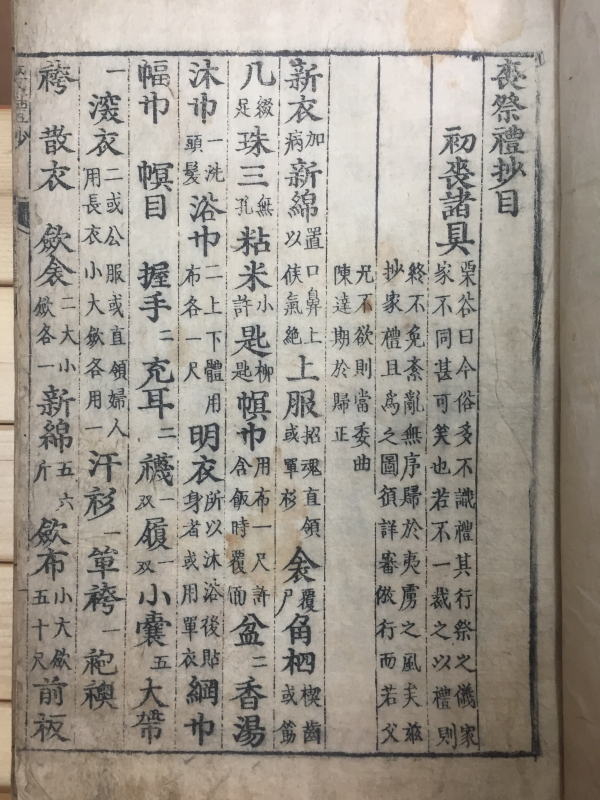 喪祭禮抄目
初喪諸具 栗谷曰今俗多不識禮其行祭之儀家家不同甚可笑也若不一裁之以禮則
終不免紊亂無序歸於夷虜之風矣玆抄家禮且爲之圖須詳審倣行而若父
兄不欲則當委曲陳達期於歸正
新衣加病新綿置口鼻上以俟氣絶上服招魂直領或單衫衾覆尸角柶楔齒或筯
几綴足珠三無孔粘米小許匙柳匙幎巾用布一尺許含飯時覆面盆二香湯
沐巾一洗頭髮浴巾二上下體用布各一尺明衣所以沐浴後貼身者或用單衣網巾
幅巾 幎目 握手二充耳二襪一双履一双小囊五大帶
一深衣二或公服或直領婦人用長衣小大斂各用一汗衫一單袴一袍襖
袴 散衣 斂衾二大小斂各一新綿五六斤斂布小大斂五十尺前板